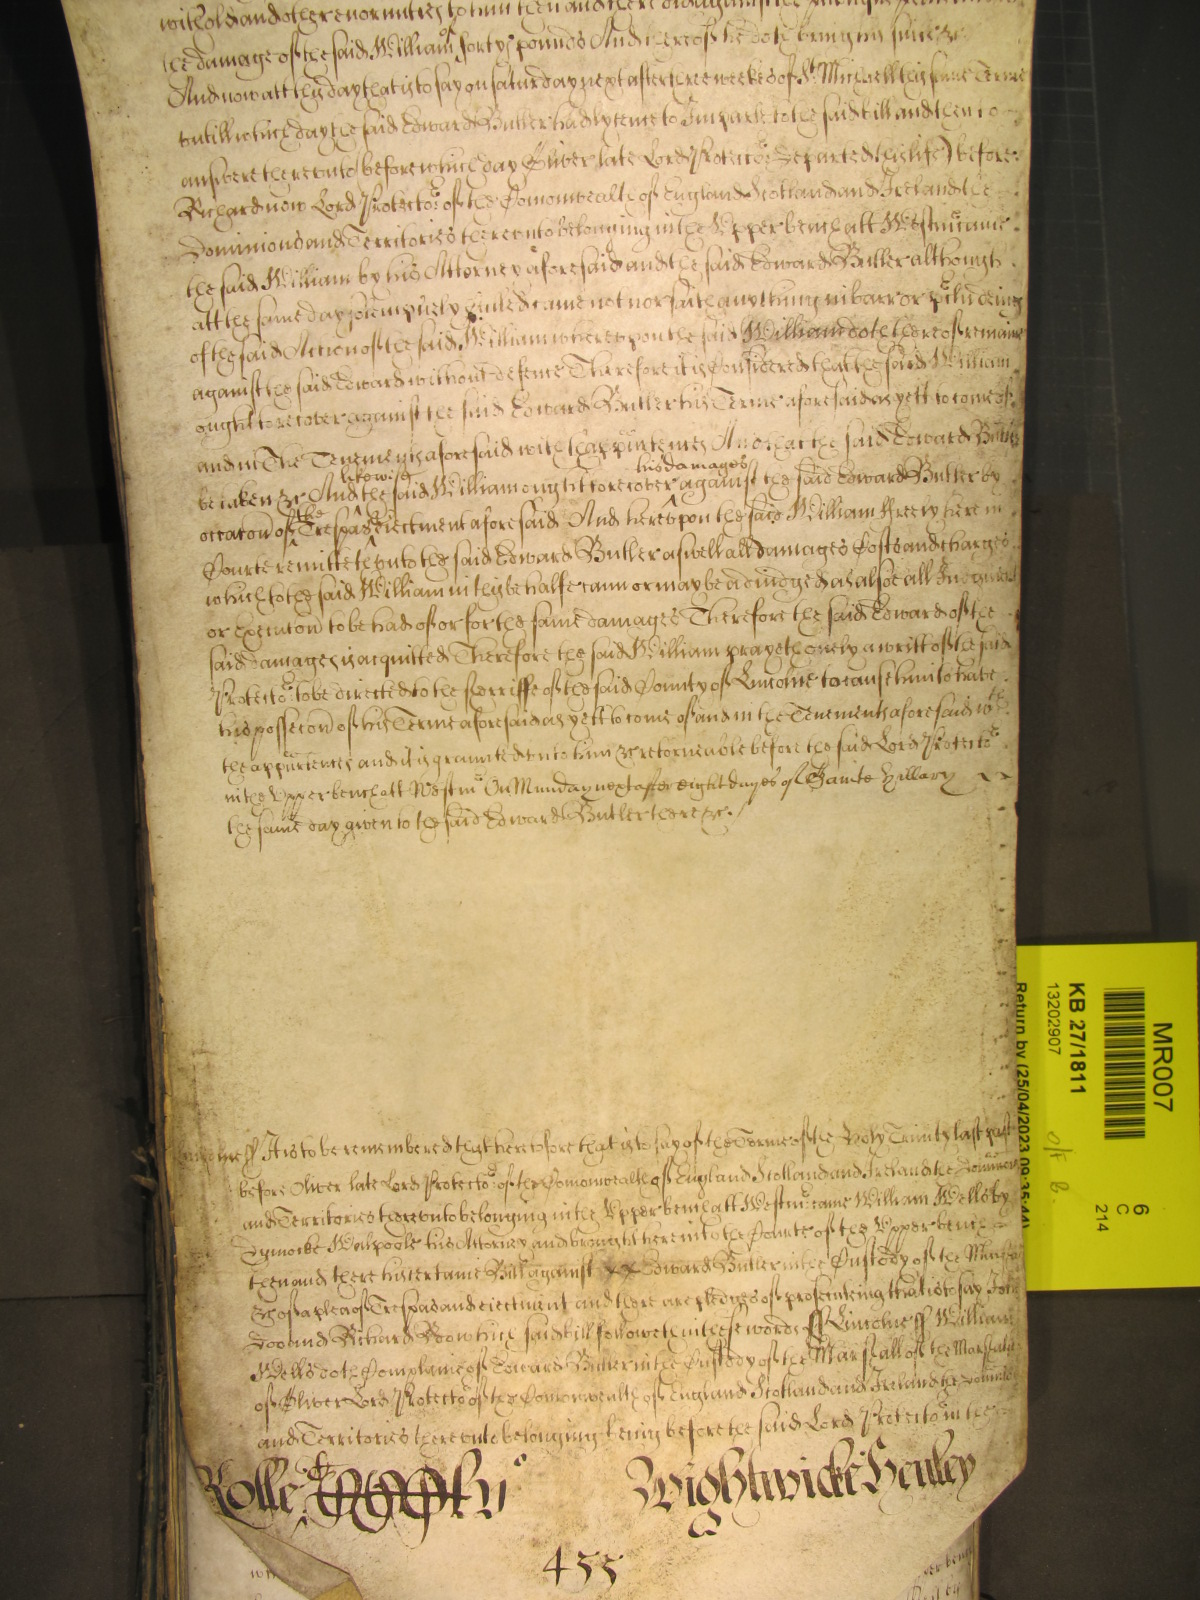 with olds and other enormityes to him then and there did against the publique peace and to
the damage of the said William forty pounds And thereof he doth bring his suite &c
And now att this day that is to say on Saturday next after three weekes of St Michaell this same Terme
untill which day the said Edward Butler had lycence to Imparle to the said bill and then to
answere thereunto before which day Oliver late Lord Protector departed this life) before
Richard now Lord Protector of the Comonwealth of England Scotland and Ireland the
Dominions and Territories thereunto belonging in the Upper bench att Westmr came
the said William by his Attorney aforesaid and the said Edward Butler although
att the same day solempnely called came not nor saith anything in barr or precludeing
of the said Action of the said William whereupon the said William doth thereof remaine
against the said Edward without defence Therefore it is Considered that the said William
ought to recover against the said Edward Butler his Terme aforesaid as yett to come of
and in the Tenements aforesaid with thappurtences And that the said Edward Butler
likewise his damages
be taken &c And the said William ought to recover against the said Edward Butler by
the
occacon of Trespas & eiectment aforesaid And hereupon the said William freely here in
Courte remitteth unto the said Edward Butler aswell all damages Costs and charges
which to the said William in this behalfe cann or may be adiudged as alsoe all Iudgment
or execution to be had of or for the same damages Therefore the said Edward of the
said damages is acquitted Therefore the said William prayeth onely a writt of the said
Protector to be directed to the sherriffe of the said County of Lincolne to cause him to have
his possession of his Terme aforesaid as yett to come of and in the Tenements aforesaid wth
the appurtences and it is graunted unto him &c retorneable before the said Lord Protector
in the Upper bench att Westmr On Munday next after eight dayes of Sainte Hillary
the same day given to the said Edward Butler there &c.
Lincolne ss It is to be remembered that heretofore that is to say of the Terme of the Holy Trinity last past
before Oliver late Lord Protector of the Comonwealth of England Scotland and Ireland the Dominions
and Territories thereunto belonging in the Upper bench att Westmr came William Wells by
Dymocke Walpoole his Attorney and brought here into the Courte of the Upper bench
then and there his certaine Bill against Edward Butler in the Custody of the Marshall
&c of a plea of Trespas and eiectment and there are pledges of prosecuteing that is to say John
Doo and Richard Roo which said bill followeth in these words ss Lincolne ss William
Wells doth Complaine of Edward Butler in the Custody of the Marshall of the Marshalsea
of Oliver Lord Protector of the Comonwealth of England Scotland and Ireland the Dominions
and Territories thereunto belonging being before the said Lord Protector in the
Rolle Wightwicke Henley
455
MR007
6
C
214
KB 27/1811
13202907
Return by (25/04/2023 09:35:44)